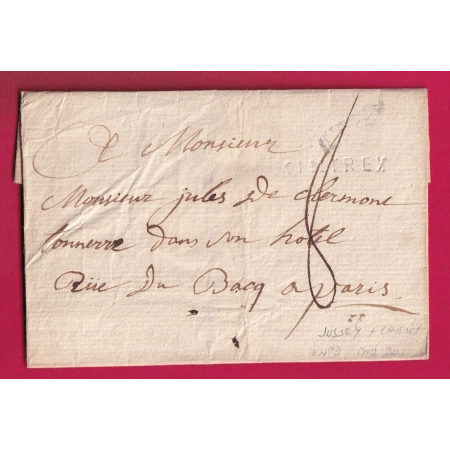 A Monsieur
CINTREY
Monsieur jules De clermont
tonnerre dans son hotel
8
Rüe Du Bacq a paris
58
JUSSEY